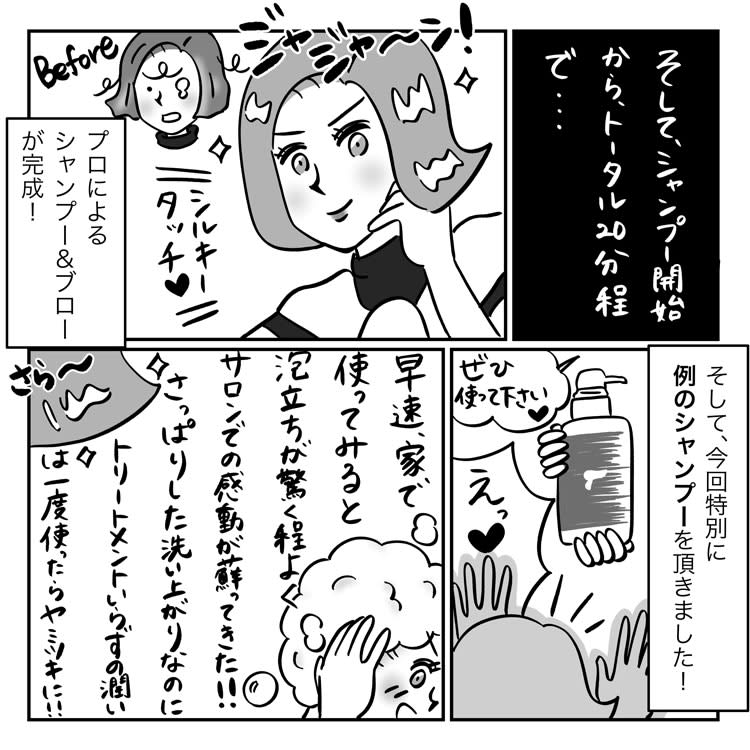 そして、シャンプー開始
から、トータル20分程
で...
ジャジャ〜ン!
Before
シルキー
タッチ♥
プロによる
シャンプー&ブロー
が完成！
そして、今回特別に
例のシャンプーを頂きました！
ぜひ
使って下さい♥
えっ
♥
早速、家で
使ってみると
泡立ちが驚く程よく
サロンでの感動が蘇ってきた!!
さっぱりした洗い上がりなのに
トリートメントいらずの潤い
は一度使ったらヤミツキに!!
さら〜